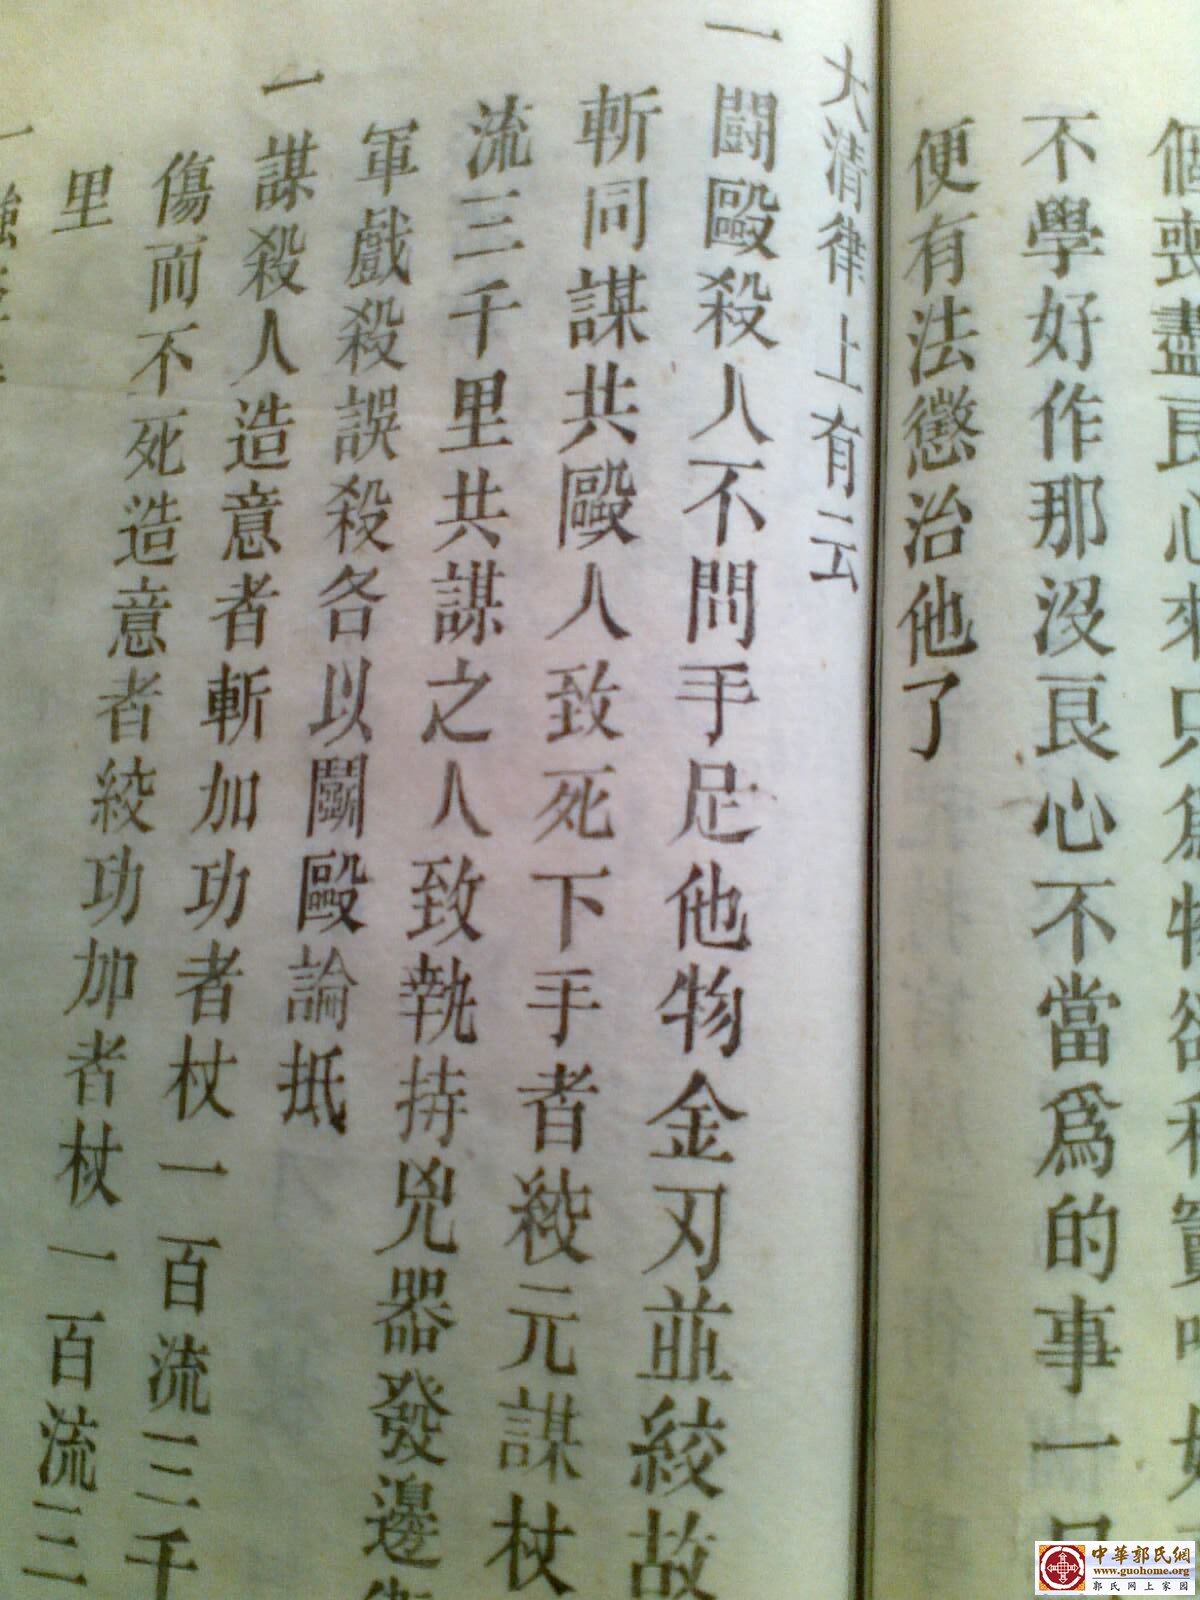 個喪盡良心來只爲物欲私
不學好作那沒良心不當爲的事一旦
便有法懲治他了
大清律上有云
一鬪毆殺人不問手足他物金刃並絞故
斬同謀共毆人致死下手者絞元謀杖
流三千里共謀之人致執持兇器發邊
軍戲殺誤殺各以鬬毆論抵
一謀殺人造意者斬加功者杖一百流三千
里
傷而不死造意者絞功加者杖一百流三
一強
中華郭氏網
www.guohome.org
郭氏网上家园